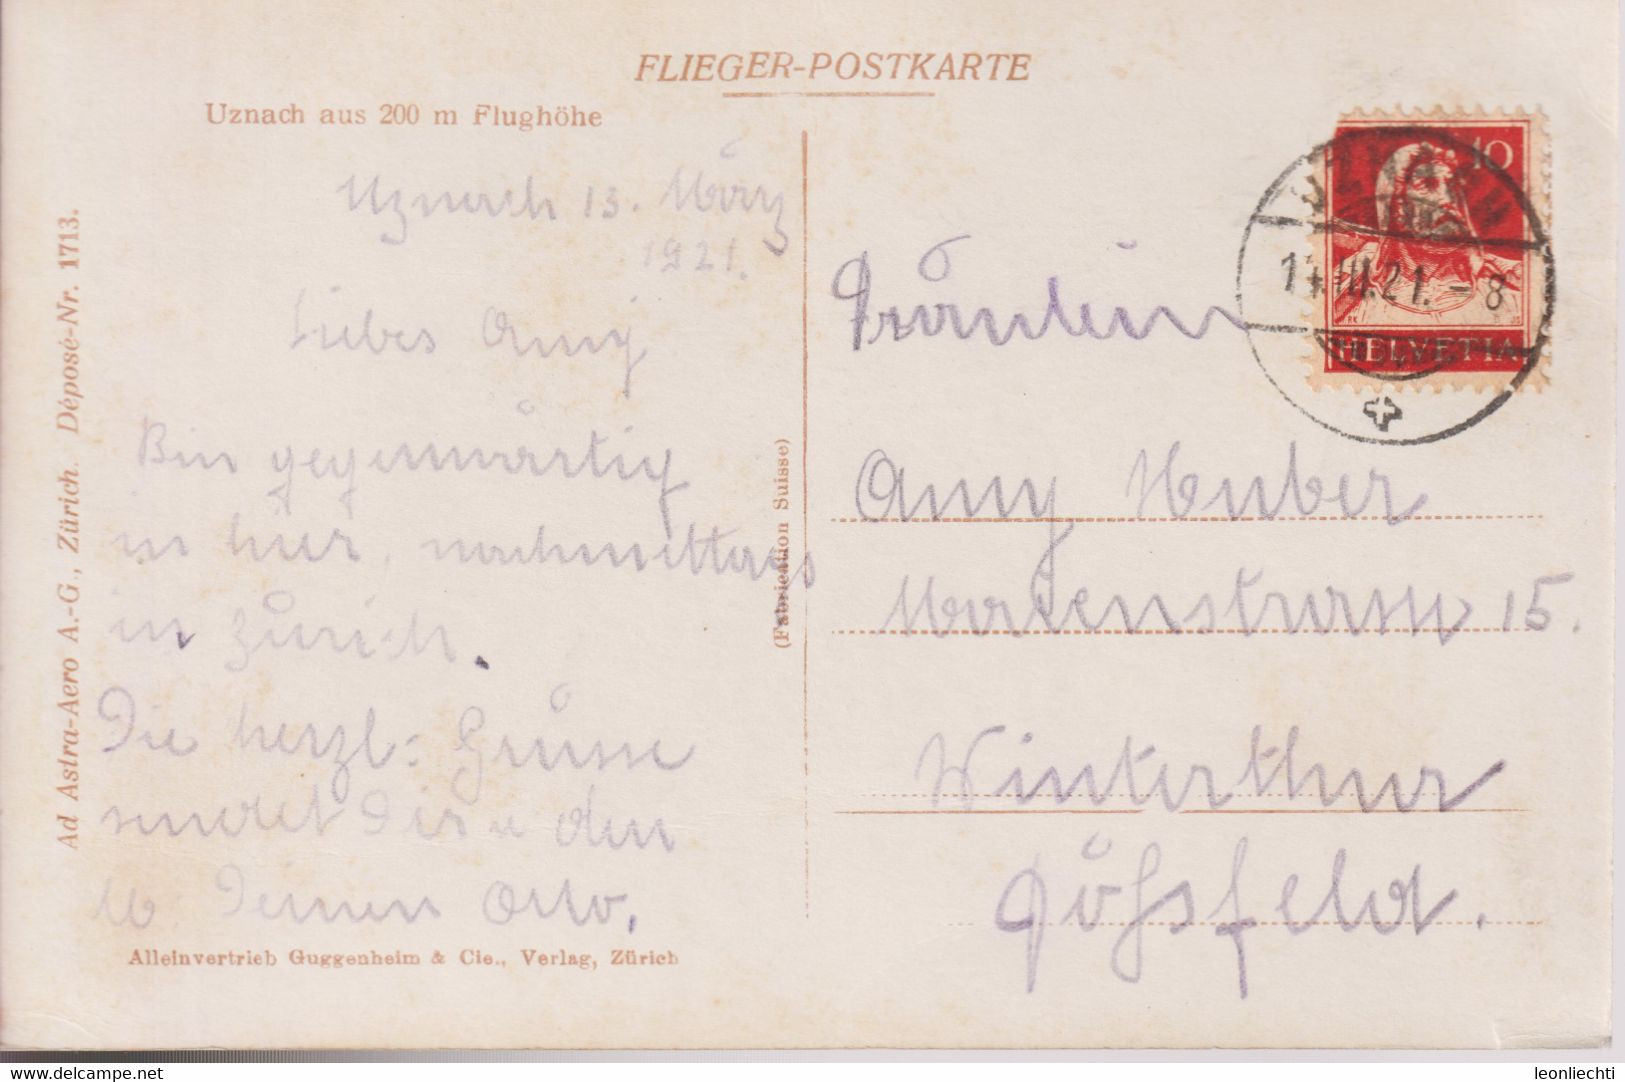 FLIEGER-POSTKARTE
Uznach aus 200 m Flughöhe
Uznach 13. März
1921.
Liebes Amy
Bin gegenwärtig
in hier, nachmittags
in Zürich.
Die herzl: Grüsse
sendet Dir u den
Deinen Otto.
Alleinvertrieb Guggenheim & Cie., Verlag, Zürich
Ad Astra-Aero A.-G., Zürich. Déposé-Nr. 1713.
(Fabrication Suisse)
Fräulein
Amy Huber
15.
Winterthur
UZNACH
14.III.21.-8
10
HELVETIA
leonliechti